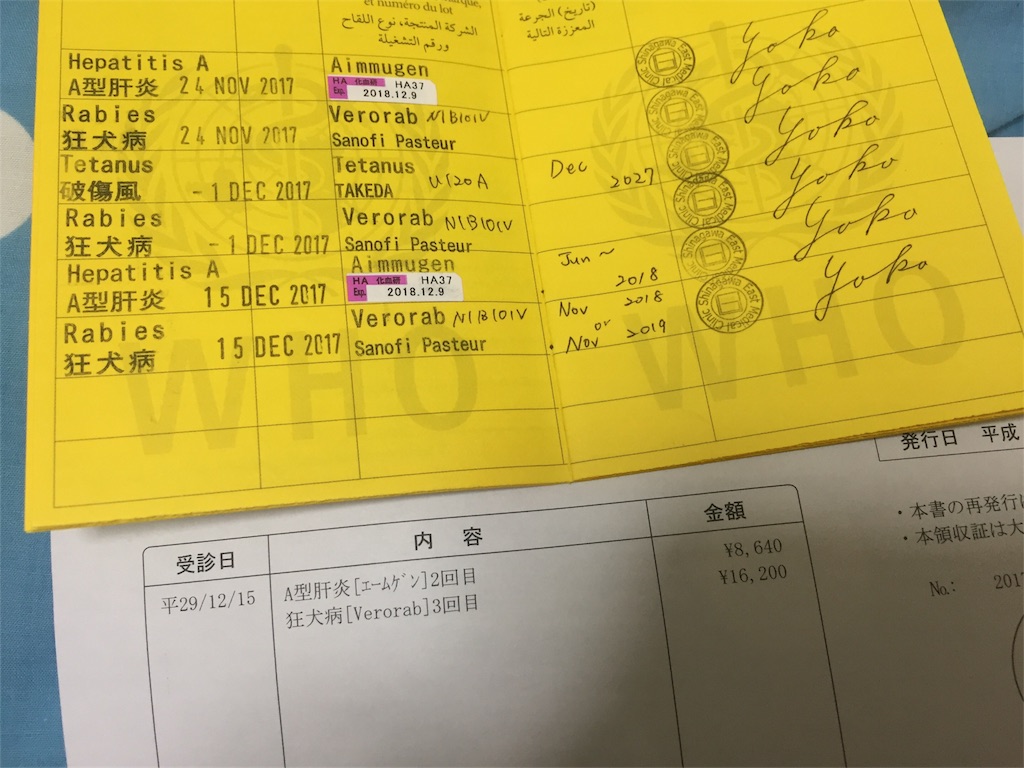 et numéro du lot
الشركة المنتجة، نوع اللقاح
ورقم التشغيلة
(تاريخ) الجرعة
المعززة التالية
Hepatitis A
A型肝炎 24 NOV 2017
Aimmugen
HA 化血研 HA37
Exp. 2018.12.9
Yoko
Rabies
狂犬病 24 NOV 2017
Verorab N1B101V
Sanofi Pasteur
Yoko
Tetanus
破傷風 -1 DEC 2017
Tetanus
TAKEDA U120A
Dec 2027
Yoko
Rabies
狂犬病 -1 DEC 2017
Verorab N1B101V
Sanofi Pasteur
Yoko
Hepatitis A
A型肝炎 15 DEC 2017
Aimmugen
HA 化血研 HA37
Exp. 2018.12.9
Jun ~ 2018
Yoko
Rabies
狂犬病 15 DEC 2017
Verorab N1B101V
Sanofi Pasteur
Nov 2018
or
・Nov 2019
Yoko
Shinagawa East Medical Clinic
WHO WHO
発行日 平成
・本書の再発行
・本領収証は大
No.: 201
受診日 内 容 金額
平29/12/15 A型肝炎[エームゲン]2回目 ¥8,640
狂犬病[Verorab]3回目 ¥16,200